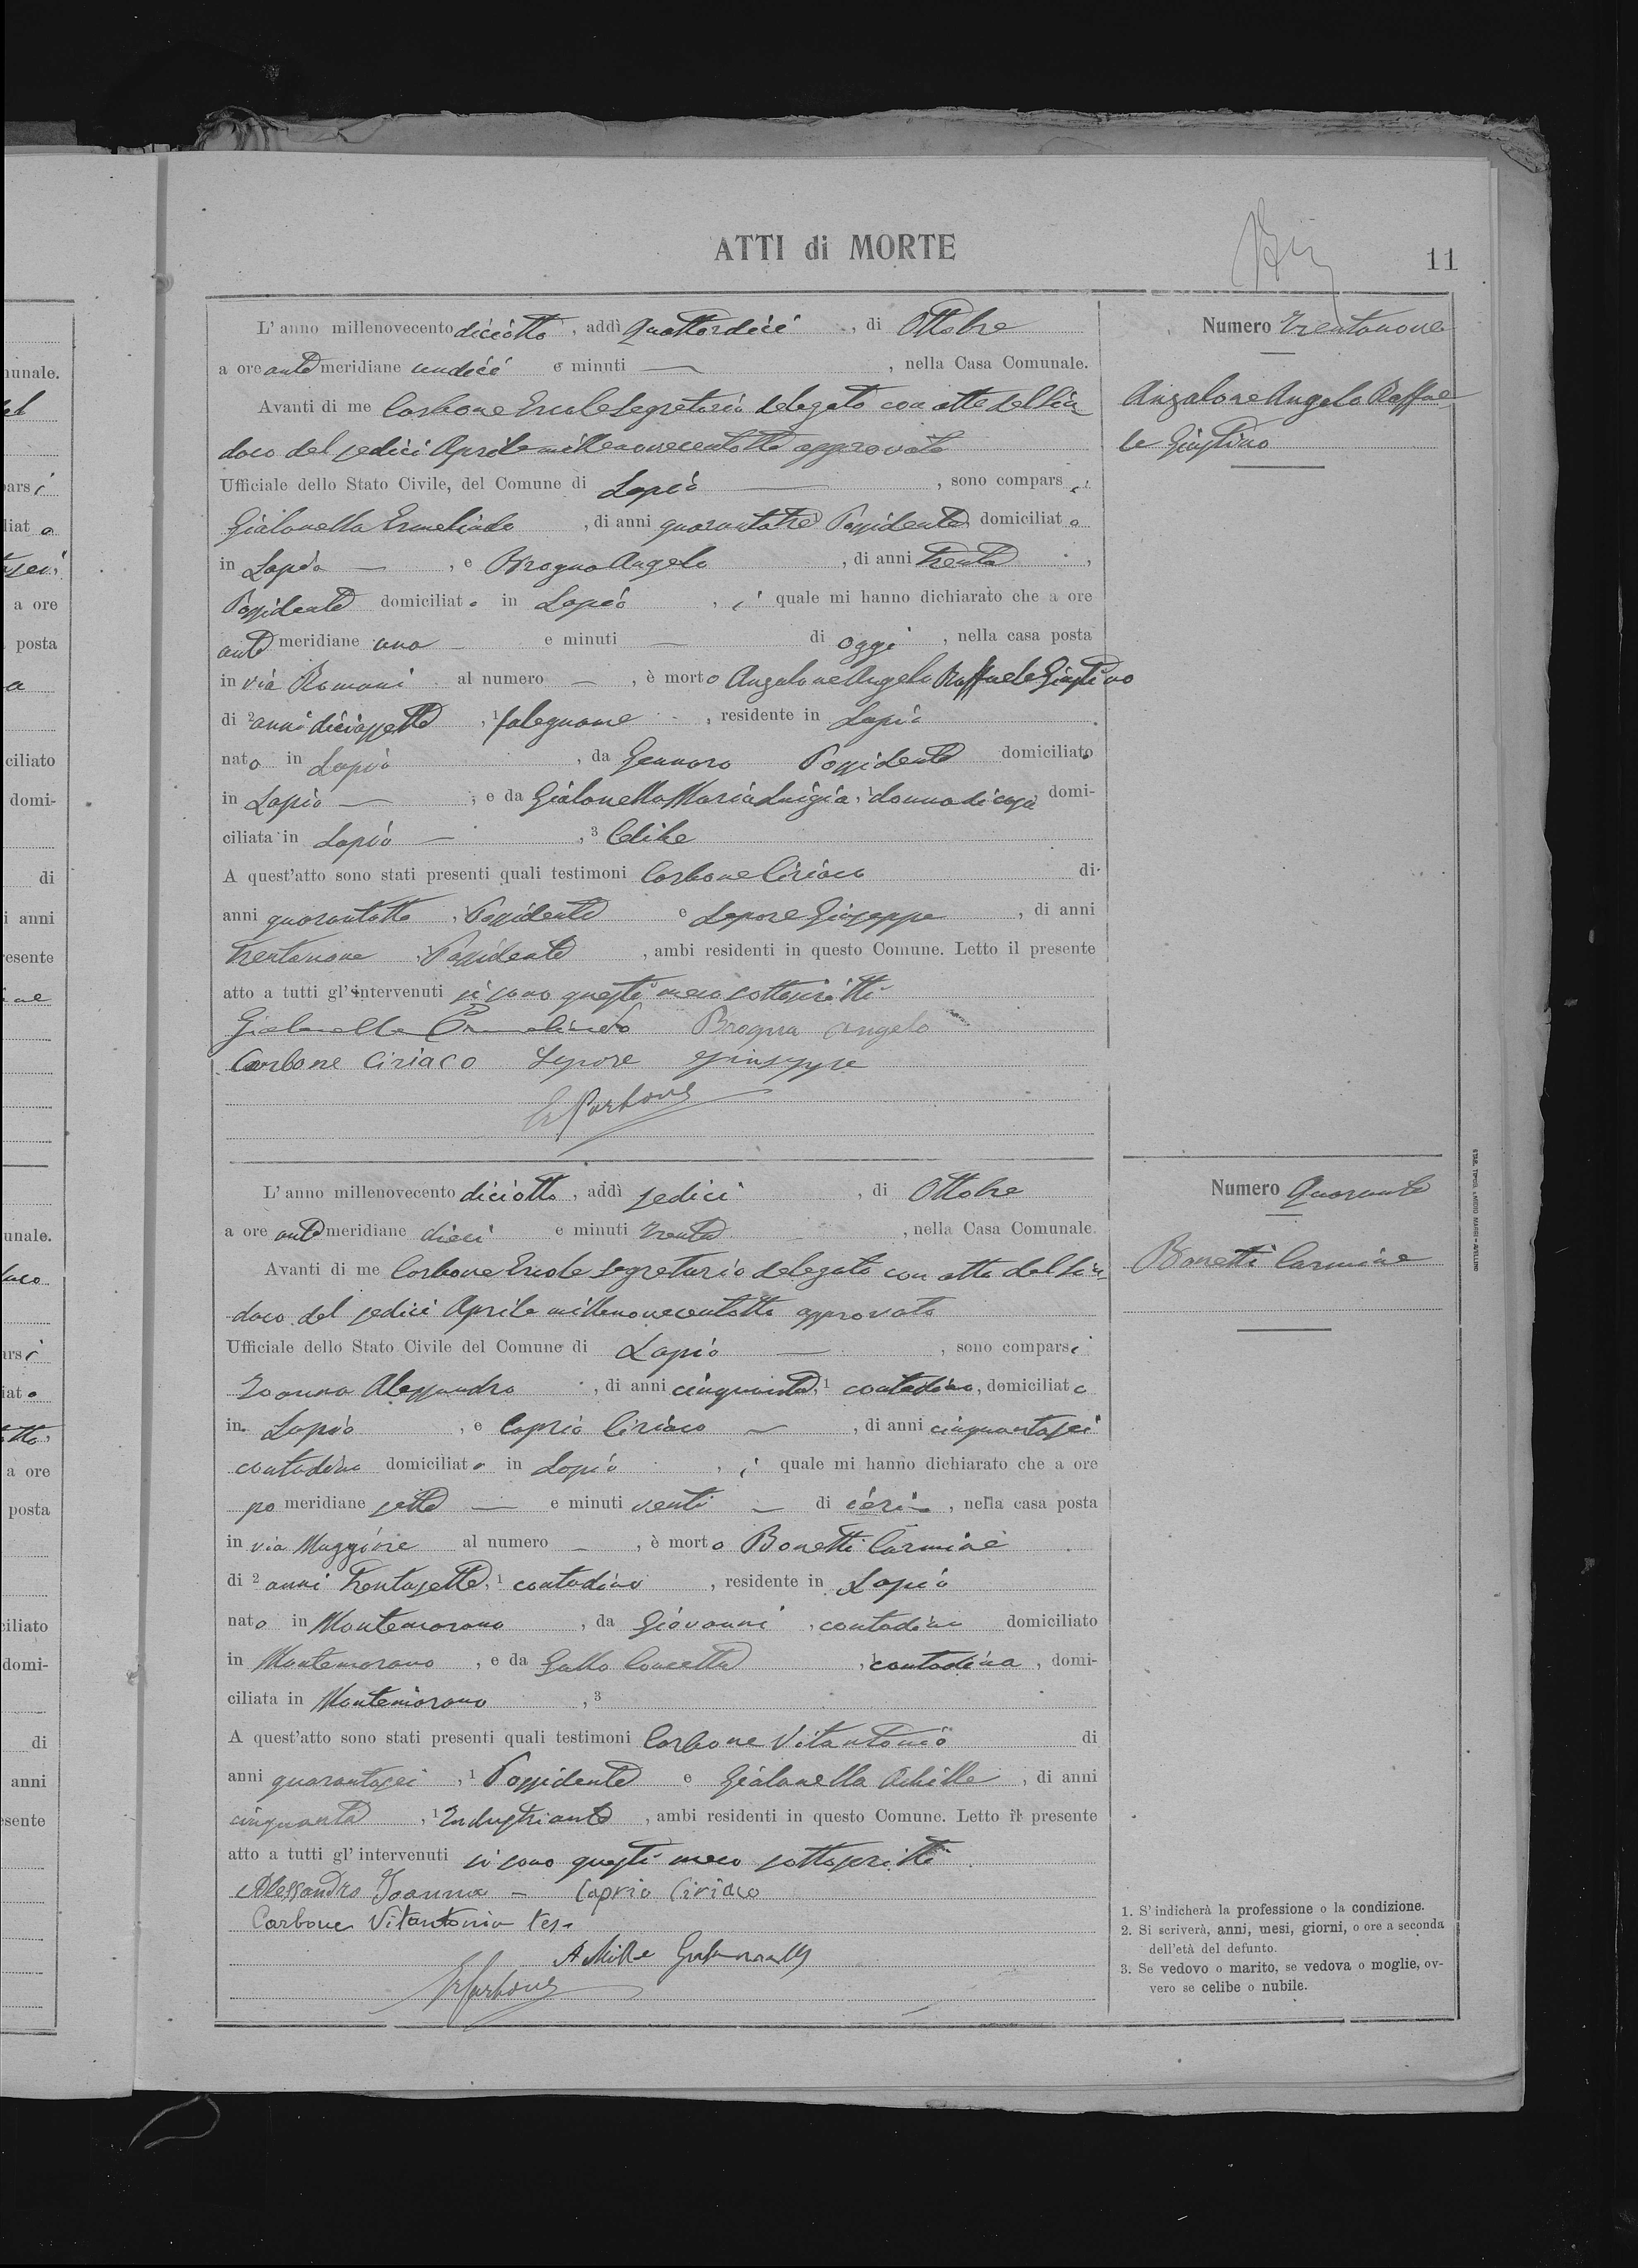 ATTI di MORTE
11
L'anno millenovecento diciotto, addì quattordici, di Ottobre
a ore ante meridiane undici e minuti —, nella Casa Comunale.
Avanti di me Carbone Ercole segretario delegato con atto del Sin
daco del sedici Aprile millenovecentotto approvato
Ufficiale dello Stato Civile, del Comune di Lapio —, sono comparsi
Gialonella Ermelindo, di anni quarantatre, 1 Possidente domiciliato
in Lapio —, e Brogna Angelo, di anni trenta,
Possidente domiciliato in Lapio, i quale mi hanno dichiarato che a ore
ante meridiane una — e minuti — di oggi, nella casa posta
in via Romani al numero —, è morto Anzalone Angelo Raffaele Giustino
di 2 anni diciassette, 1 falegname, residente in Lapio
nato in Lapio, da Gennaro Possidente domiciliato
in Lapio —, e da Gialonella Maria Luigia, 1 donna di casa domi-
ciliata in Lapio —, 3 Celibe
A quest'atto sono stati presenti quali testimoni Carbone Ciriaco di
anni quarantotto, 1 Possidente e Lepore Giuseppe, di anni
trentanove, 1 Possidente, ambi residenti in questo Comune. Letto il presente
atto a tutti gl'intervenuti si sono questi meco sottoscritti
Gialonella Ermelindo Brogna Angelo
Carbone Ciriaco Lepore Giuseppe
E. Carbone
Numero Trentanove
Anzalone Angelo Raffae
le Giustino
L'anno millenovecento diciotto, addì sedici, di Ottobre
a ore ante meridiane dieci e minuti trenta, nella Casa Comunale.
Avanti di me Carbone Ercole segretario delegato con atto del Sin
daco del sedici Aprile millenovecentotto approvato
Ufficiale dello Stato Civile del Comune di Lapio —, sono comparsi
Ioanna Alessandro, di anni cinquanta, 1 contadino, domiciliato
in Lapio, e Caprio Ciriaco —, di anni cinquantasei
contadino domiciliato in Lapio, i quale mi hanno dichiarato che a ore
po meridiane sette — e minuti venti — di ieri —, nella casa posta
in via Maggiore al numero —, è morto Bonetti Carmine
di 2 anni trentasette, 1 contadino, residente in Lapio
nato in Montemarano, da Giovanni, contadino domiciliato
in Montemarano, e da Gallo Concetta, 1 contadina, domi-
ciliata in Montemarano, 3
A quest'atto sono stati presenti quali testimoni Carbone Vitantonio di
anni quarantasei, 1 Possidente e Gialonella Achille, di anni
cinquanta, 1 Industriante, ambi residenti in questo Comune. Letto il presente
atto a tutti gl'intervenuti si sono questi meco sottoscritti
Alessandro Ioanna — Caprio Ciriaco
Carbone Vitantonio tes.
Achille Gialonella
E. Carbone
Numero Quaranta
Bonetti Carmine
1. S'indicherà la professione o la condizione.
2. Si scriverà, anni, mesi, giorni, o ore a seconda
dell'età del defunto.
3. Se vedovo o marito, se vedova o moglie, ov-
vero se celibe o nubile.